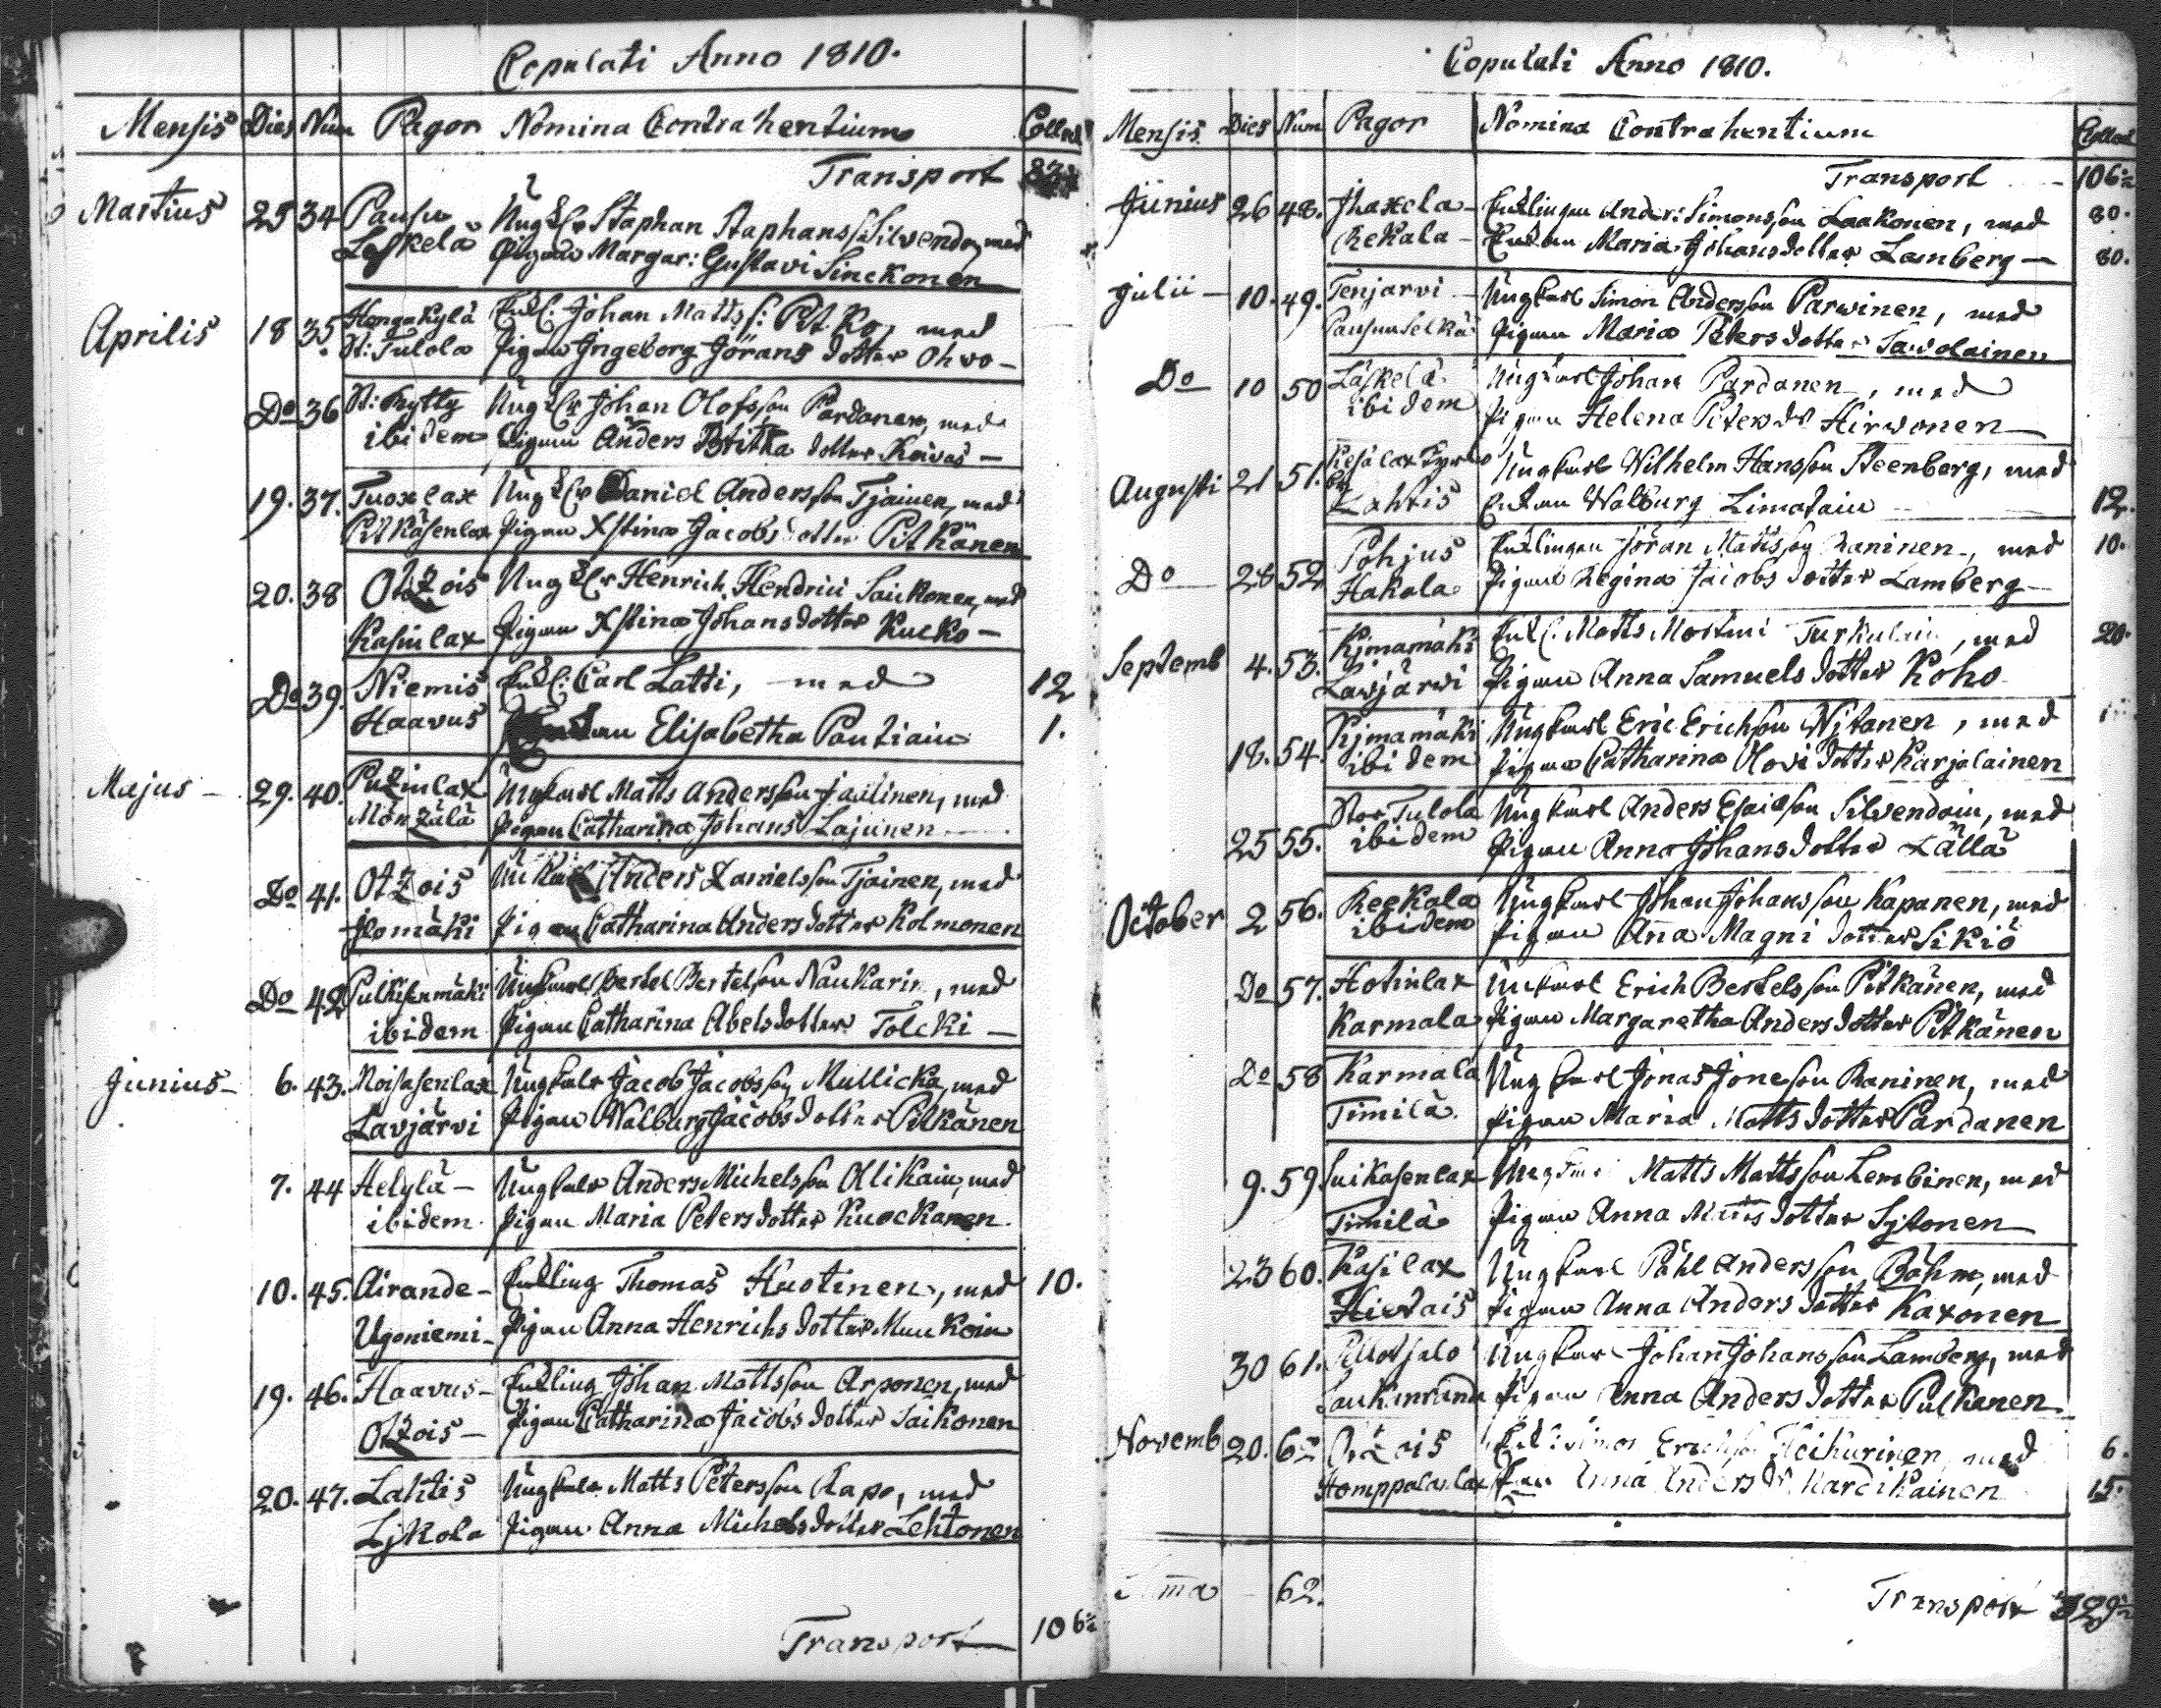 Copulati Anno 1810.
Mensis Dies Num Pagor Nomina Contrahentium Collect
Transport
Martius 25 34 Pausu Ungk:r Staphan Staphanss: Silvendo, med
Leskelä Pigan Margar: Gustavi Sinekonen
Aprilis 18 35. Hongakylä Enkl: Johan Matts s: Pit Ko, med
St: Tulola Pigan Ingeborg Jörans dotter Ohvo -
Do 36 St: Rytty Ungk:r Johan Olofsson Pardanen, med
ibidem Pigan Anders Britta dotter Koivas -
19. 37. Tuoxlax Ungk:r Daniel Andersson Tjainen, med
Pitkäsenlax Pigan Xstina Jacobs dotter Pitkänen
20. 38 Otzois Ungk:r Henrich Hendrici Saukonen, med
Kasinlax Pigan Xstina Johans dotter Kucko -
Do 39. Niemis Enkl: Carl Latti, med 12
Haavus Enkan Elisabetha Pautiain 1.
Majus - 29. 40. Putzinlax Ungkarl Matts Andersson Paulinen, med
Mönzälä Pigan Catharina Johans Lajunen
Do 41. Otzois Unkarl Anders Danielsson Tjainen, med
Jlomäki Pigan Catharina Anders dotter Kolmonen
Do 42 Pulkisenmäki Ungkarl Bertel Bertelson Naukarin, med
ibidem Pigan Catharina Abels dotter Tölcki -
Junius - 6. 43. Noisasenlax Ungkarl Jacob Jacobsson Mullicka, med
Lavjärvi Pigan Walburg Jacobs dotter Pitkänen
7. 44 Helylä - Ungkarl Anders Michelsson Ollikain, med
ibidem Pigan Maria Peters dotter Kuockanen.
10. 45. Airande - Enkling Thomas Huotinen, med 10.
Ugoniemi - Pigan Anna Henrichs dotter Muukoin
19. 46. Haavus - Enkling Johan Mattsson Arponen, med
Otzois - Pigan Catharina Jacobs dotter Saikonen
20. 47. Lahtis Ungkarl Matts Petersson Rapo, med
Ljkola Pigan Anna Michels dotter Lehtonen
Transport 106½
Copulati Anno 1810.
Mensis Dies Num Pagor Nomina Contrahentium Collect
Transport 106½
Junius 26 48. Jhaxela - Enklingen Ander: Simonsson Laakonen, med 80.
Rekala - Enkan Maria Johans dotter Lamberg - 80.
Julii - 10. 49. Tenjarvi - Ungkarl Simon Andersson Parwinen, med
Pausunselkä Pigan Maria Peters dotter Savolainen
Do 10 50 Läskelä Ungkarl Johan Pardanen, med
ibidem Pigan Helena Peters dr Hirwonen
Augusti 21 51. Ungkarl Wilhelm Hansson Steenberg, med
Lahtis Enkan Walburg Limatain 12.
Do 28 52 Pohjus Enklingen Jöran Mattsson Raninen, med 10.
Hakala Pigan Regina Jacobs dotter Lamberg -
Septemb 4. 53. Kjmamäki Enkl: Matts Martini Turkulain, med 20.
Lavjärvi Pigan Anna Samuels dotter Koho
18. 54. Kjmamäki Ungkarl Eric Erichson Wjtanen, med
ibidem Pigan Catharina Olovi dotter Karjalainen
25 55. Stor Tulola Ungkarl Anders Esaiesson Silvendoin, med
ibidem Pigan Anna Johans dotter Lällä
October 2 56. Reekala Ungkarl Johan Johansson Kapanen, med
ibidem Pigan Anna Magni dotter Sikiö
Do 57. Hotinlax Unkarl Erich Bertelsson Pitkänen, med
Karmala Pigan Margaretha Anders dotter Pitkänen
Do 58 Karmala Ungkarl Jonas Jonesson Raninen, med
Timilä Pigan Maria Matts dotter Pardanen
9. 59. Suikasenlax Ungkarl Matts Mattsson Lembinen, med
Timilä Pigan Anna Matts dotter Sytonen
23 60. Kasilax Ungkarl Påhl Andersson Böhm, med
Hirdais Pigan Anna Anders dotter Kaxonen
30 61. Pillotsalo Ungkarl Johan Johansson Lamberg, med
Laukinranda Pigan Anna Anders dotter Pulkanen
Novemb 20. 62 Otzois Enkl: Simon Erichs Heikurinen med 6.
Homppalanlax Enkan Anna Anders dr Kardikainen 15.
Summa 62.
Transport 329½